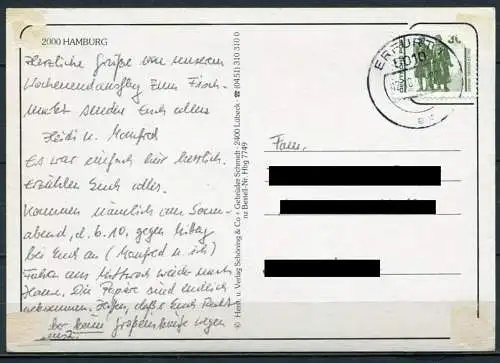 2000 HAMBURG
Herzliche Grüße von unserem
Wochenendausflug zum Fisch-
markt senden Euch allen
Heidi u. Manfred
Es war einfach hier herrlich.
Erzählen Euch alles.
Kommen nämlich am Sonn-
abend, d. 6.10. gegen Mittag
bei Euch an (Manfred u. ich)
Fahren am Mittwoch wieder nach
Hause. Die Papiere sind endlich
bekommen. Hoffen, daß es Euch
keine wegen
© Herst. u. Verlag Schöning & Co + Gebrüder Schmidt · 2400 Lübeck · ☎ (0451) 31 03 10 0
nur Bestell-Nr. Hbg 7749
Fam.
ERFURT
5010
30